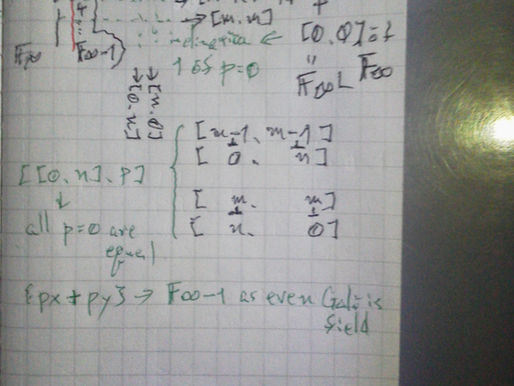 → [m, m]
[0, 0]
F∞ F∞-1
1 if p=0
F∞
[0, n] [n, 0]
[m-1, m-1]
[0, n]
[[0, n], p]
[m, m]
[n, 0]
all p=0 are
equal
{px + py} → F∞-1 as even Galois
field